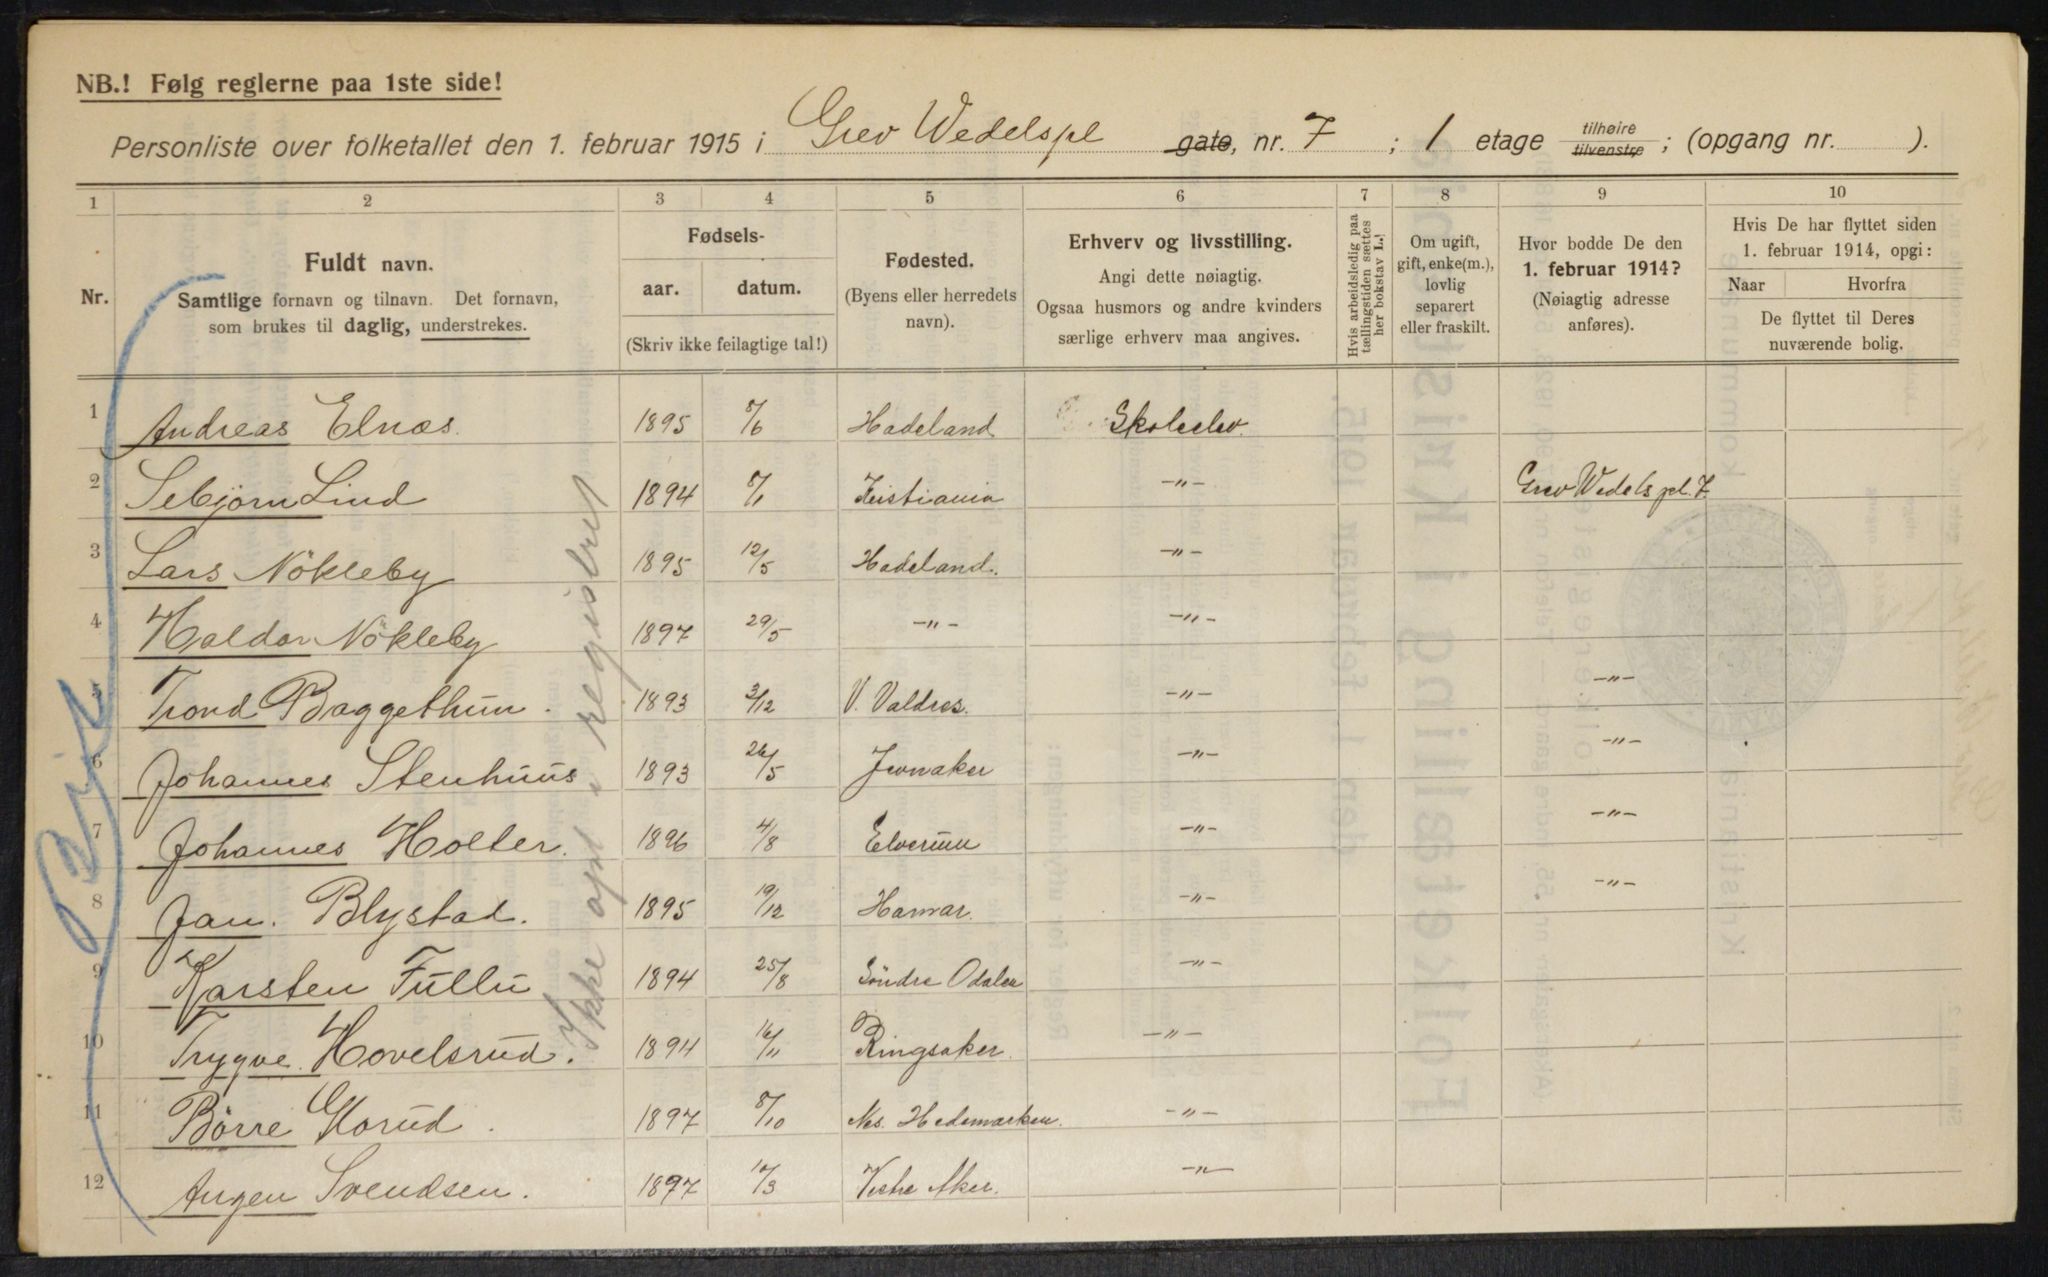 NB.! Følg reglerne paa 1ste side!
Personliste over folketallet den 1. februar 1915 i Grev Wedelspl gate, nr. 7 ; 1 etage tilhøire tilvenstre ; (opgang nr. ).
1 2 3 4 5 6 7 8 9 10
Nr.
Fuldt navn.
Samtlige fornavn og tilnavn. Det fornavn,
som brukes til daglig, understrekes.
Fødsels-
aar. datum.
(Skriv ikke feilagtige tal!)
Fødested.
(Byens eller herredets
navn).
Erhverv og livsstilling.
Angi dette nøiagtig.
Ogsaa husmors og andre kvinders
særlige erhverv maa angives.
Hvis arbeidsledig paa
tællingstiden sættes
her bokstav L.
Om ugift,
gift, enke(m.),
lovlig
separert
eller fraskilt.
Hvor bodde De den
1. februar 1914?
(Nøiagtig adresse
anføres).
Hvis De har flyttet siden
1. februar 1914, opgi:
Naar Hvorfra
De flyttet til Deres
nuværende bolig.
1 Andreas Elnæs. 1895 8/6 Hadeland Skoleelev.
2 Sebjörn Lind 1894 8/1 Kristiania -"- Grev Wedels pl. 7.
3 Lars Nökleby 1895 12/5 Hadeland. -"-
4 Haldor Nökleby 1897 29/5 -"- -"-
5 Trond Baggethun. 1893 3/12 V. Valdres. -"- -"-
6 Johannes Stenhuus 1893 26/5 Jevnaker -"- -"-
7 Johannes Holter. 1896 4/8 Elverum -"- -"-
8 Jan. Blystad. 1895 19/12 Hamar. -"- -"-
9 Karsten Fullu 1894 25/8 Söndre Odalen -"-
10 Trygve. Hovelsrud. 1894 16/11 Ringsaker. -"-
11 Börre Glorud. 1897 8/10 Nes. Hedemarken. -"-
12 Angen Svendsen. 1897 10/3 Vestre Aker. -"-
Ikke opf i registret